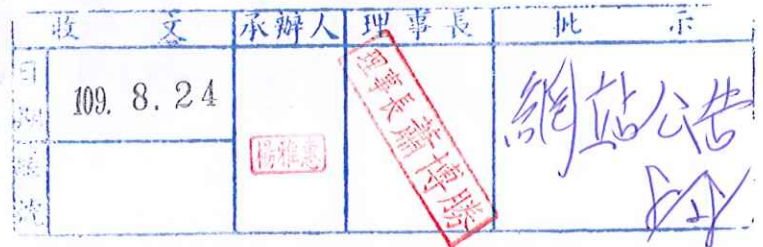 收文 承辦人 理事長 批示
日期 109. 8. 24
楊雅惠
理事長蕭博勝
網站公告
號次